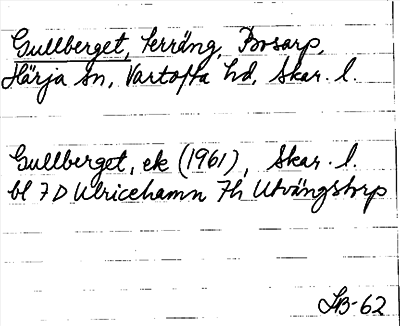 Gullberget, terräng, Bosarp,
Härja sn, Vartofta hd, Skar. l.
Gullberget, ek (1961), Skar. l.
bl 7 D Ulricehamn 7h Utvängstorp
LB-62